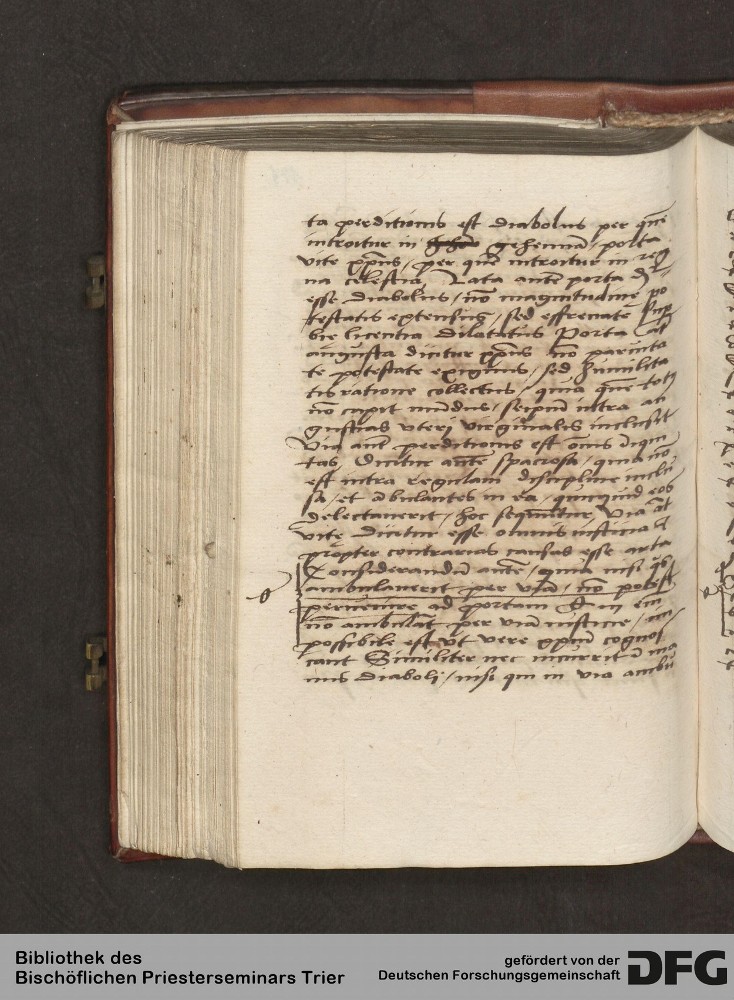 ta perditionis est diabolus per quē
introitur in gehennā, porta
vite xp̄us, per quē introitur in reg
na celestia, Lata autē porta dr̄
esse diabolus, nō magnitudine po
testatis extensus, sed effrenate sup
bie licentia dilatatus Porta at̄
angusta dicitur xp̄us nō parvita
te potestate exiguus, sed humilita
tis ratione collectus, quia quē tot9
nō capit mūdus, seipsū intra an
gustias vteri virginalis inclusit
Via aut̄ perditionis est oīs iniqui
tas, Dicitur autē spaciosa, quia nō
est intra regulam discipline inclu
sa, et ambulantes in ea, quicquid eos
delectauerit, hoc sequūtur, Via at̄
vite dicitur esse omnis iusticia et
propter contrarias causas esse arta
Considerandū autē, quia nisi q̄s
ambulauerit per viā, nō potest
peruenire ad portam Qui em̄
nō ambulāt per viā iusticie, im
possibile est vt vere xp̄um cognos
cant Similiter nec incurrit ī ma
nus diaboli, nisi qui in via ambu
Bibliothek des
Bischöflichen Priesterseminars Trier
gefördert von der
Deutschen Forschungsgemeinschaft
DFG